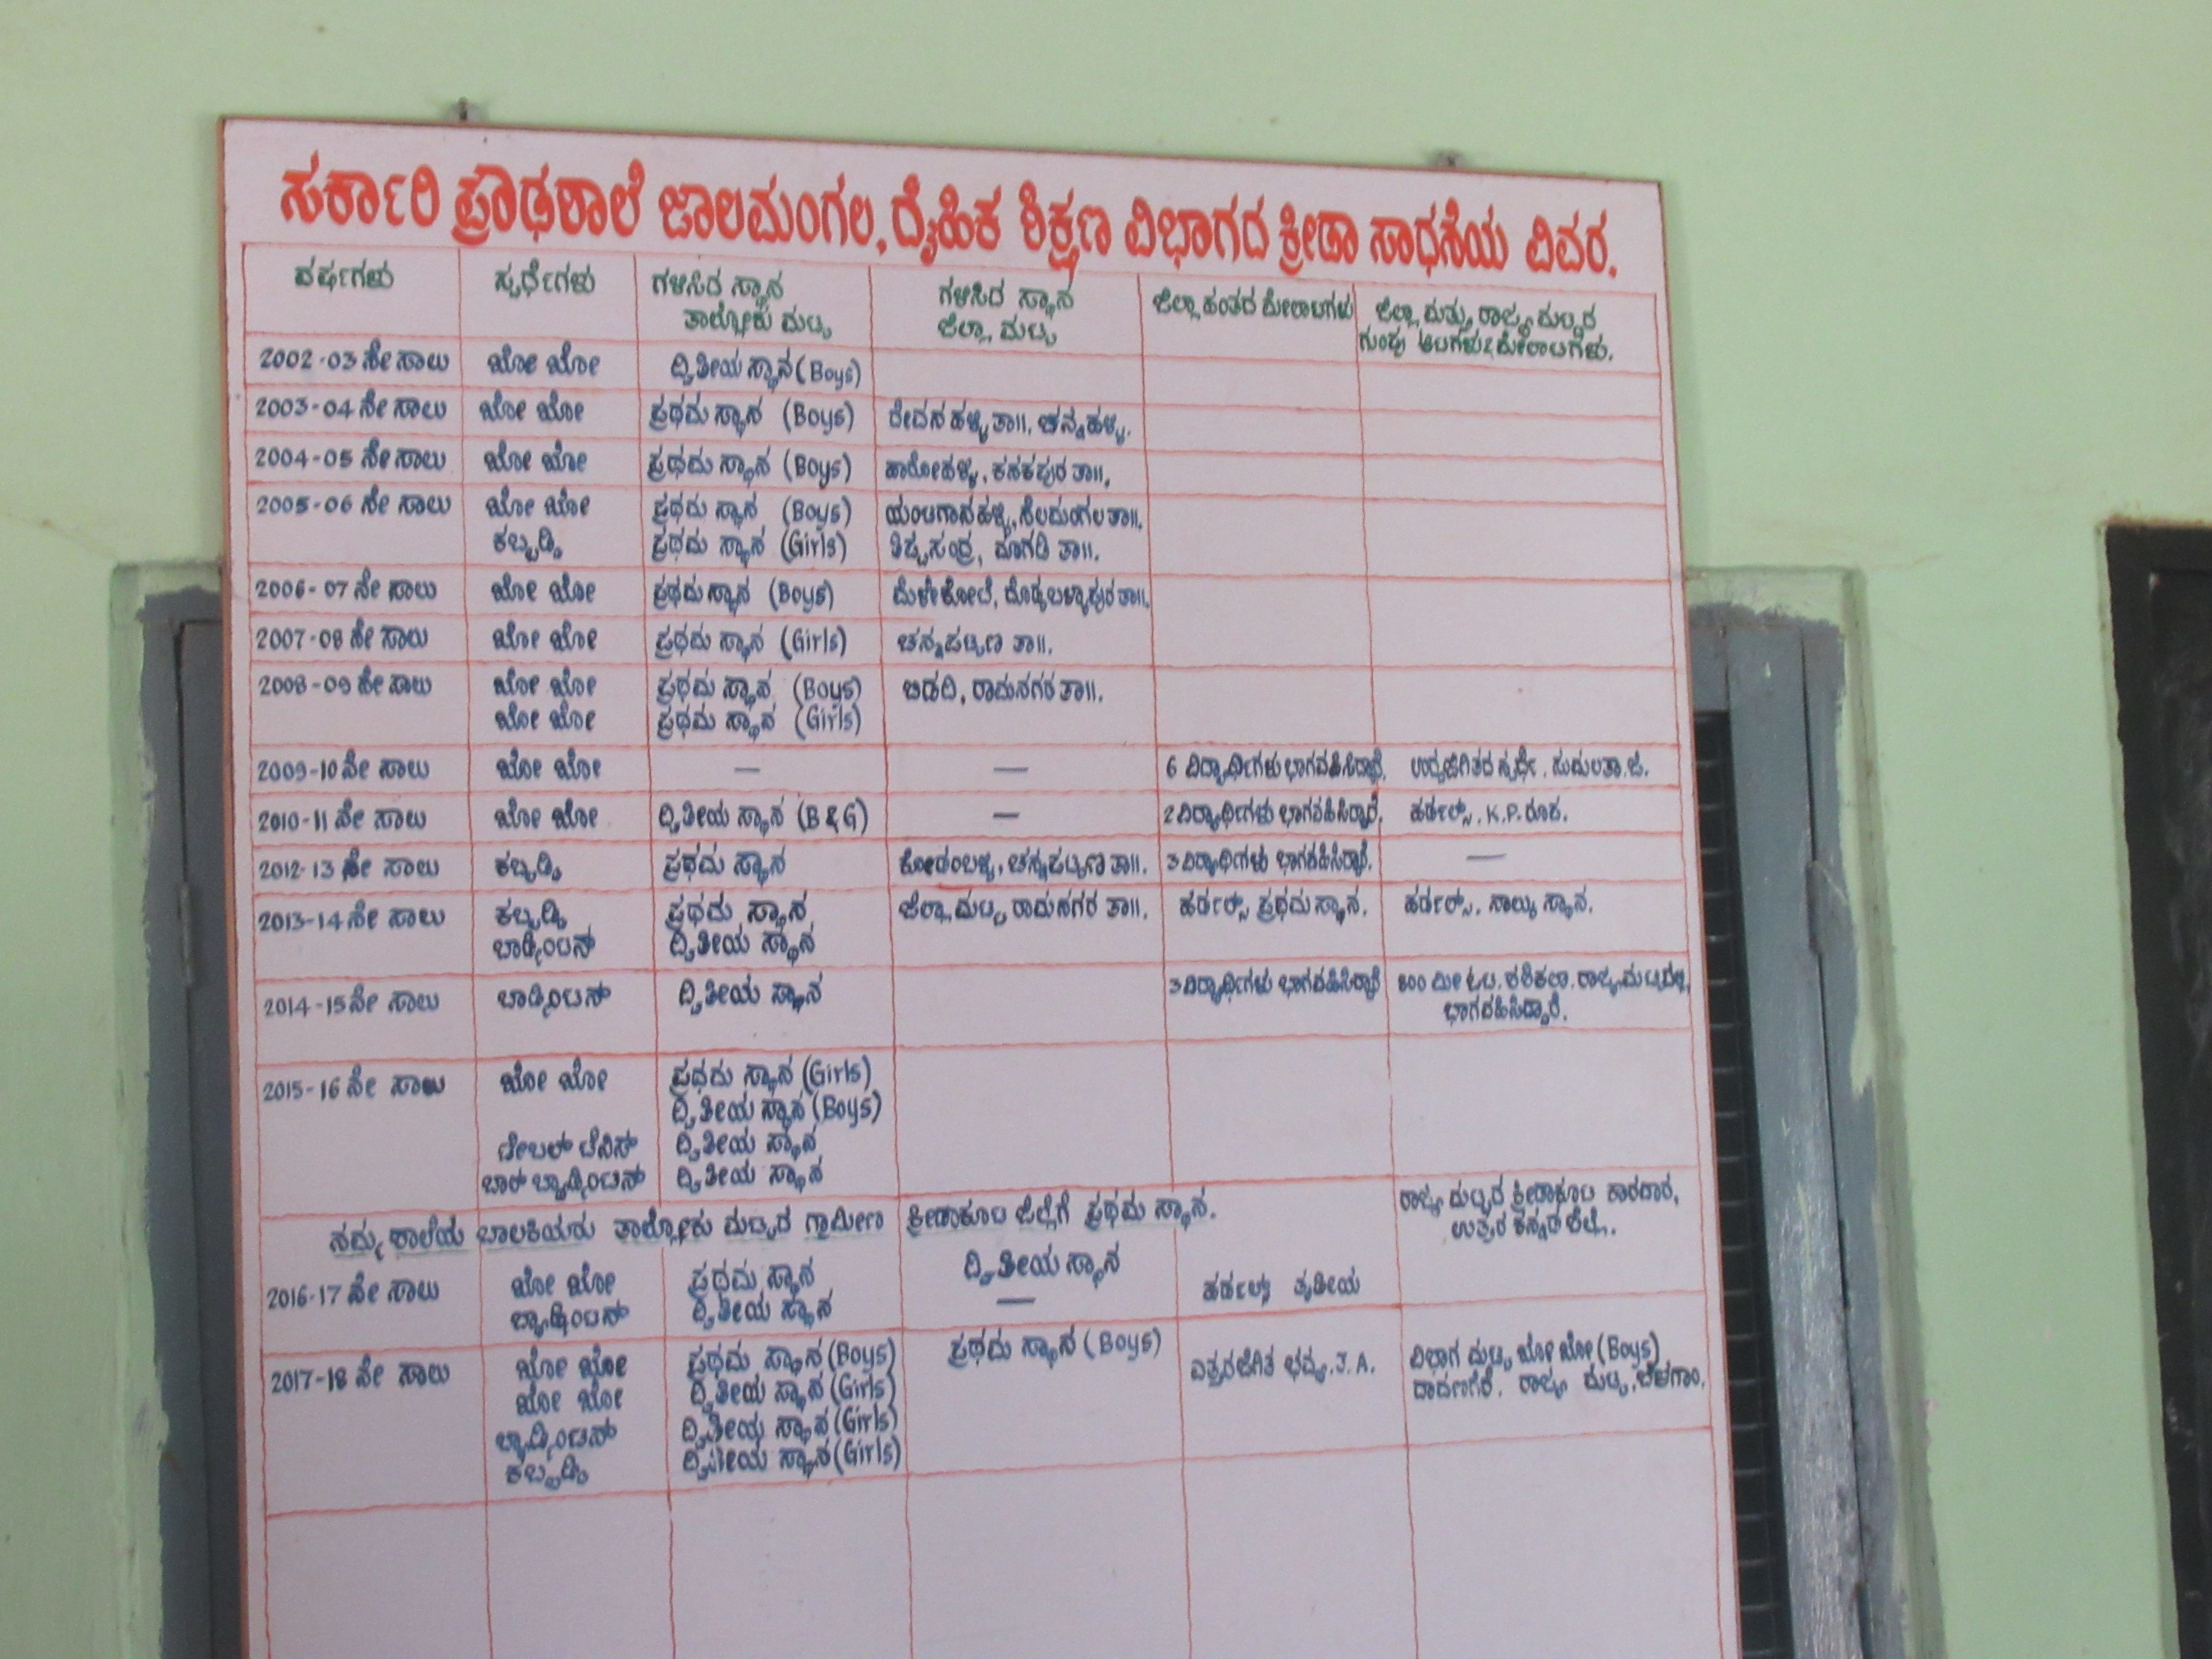 ಸರ್ಕಾರಿ ಪ್ರೌಢಶಾಲೆ ಜಾಲಮಂಗಲ, ದೈಹಿಕ ಶಿಕ್ಷಣ ವಿಭಾಗದ ಕ್ರೀಡಾ ಸಾಧನೆಯ ವಿವರ.
ವರ್ಷಗಳು ಸ್ಪರ್ಧೆಗಳು ಗಳಿಸಿದ ಸ್ಥಾನ ತಾಲ್ಲೋಕು ಮಟ್ಟ ಗಳಿಸಿದ ಸ್ಥಾನ ಜಿಲ್ಲಾ ಮಟ್ಟ ಜಿಲ್ಲಾ ಹಂತದ ಮೇಲಾಟಗಳು ಜಿಲ್ಲಾ ಮತ್ತು ರಾಜ್ಯ ಮಟ್ಟದ
ಗುಂಪು ಆಟಗಳು & ಮೇಲಾಟಗಳು.
2002-03 ನೇ ಸಾಲು ಖೋ ಖೋ ದ್ವಿತೀಯ ಸ್ಥಾನ (Boys)
2003-04 ನೇ ಸಾಲು ಖೋ ಖೋ ಪ್ರಥಮ ಸ್ಥಾನ (Boys) ದೇವನಹಳ್ಳಿ ತಾ॥. ಚನ್ನಹಳ್ಳಿ.
2004-05 ನೇ ಸಾಲು ಖೋ ಖೋ ಪ್ರಥಮ ಸ್ಥಾನ (Boys) ಹಾರೋಹಳ್ಳಿ, ಕನಕಪುರ ತಾ॥.
2005-06 ನೇ ಸಾಲು ಖೋ ಖೋ ಪ್ರಥಮ ಸ್ಥಾನ (Boys) ಯಂಟಗಾನಹಳ್ಳಿ, ನೆಲಮಂಗಲ ತಾ॥.
ಕಬ್ಬಡ್ಡಿ ಪ್ರಥಮ ಸ್ಥಾನ (Girls) ತಿಪ್ಪಸಂದ್ರ, ಮಾಗಡಿ ತಾ॥.
2006-07 ನೇ ಸಾಲು ಖೋ ಖೋ ಪ್ರಥಮ ಸ್ಥಾನ (Boys) ಮೆಳೇಕೋಟೆ, ದೊಡ್ಡಬಳ್ಳಾಪುರ ತಾ॥.
2007-08 ನೇ ಸಾಲು ಖೋ ಖೋ ಪ್ರಥಮ ಸ್ಥಾನ (Girls) ಚನ್ನಪಟ್ಟಣ ತಾ॥.
2008-09 ನೇ ಸಾಲು ಖೋ ಖೋ ಪ್ರಥಮ ಸ್ಥಾನ (Boys) ಬಿಡದಿ, ರಾಮನಗರ ತಾ॥.
ಖೋ ಖೋ ಪ್ರಥಮ ಸ್ಥಾನ (Girls)
2009-10 ನೇ ಸಾಲು ಖೋ ಖೋ — — 6 ವಿದ್ಯಾರ್ಥಿಗಳು ಭಾಗವಹಿಸಿದ್ದಾರೆ. ಉದ್ದಜಿಗಿತದ ಸ್ಪರ್ಧೆ.
2010-11 ನೇ ಸಾಲು ಖೋ ಖೋ ದ್ವಿತೀಯ ಸ್ಥಾನ (B & G) — 2 ವಿದ್ಯಾರ್ಥಿಗಳು ಭಾಗವಹಿಸಿದ್ದಾರೆ. ಹರ್ಡಲ್ಸ್. K.P. ರೂಪ.
2012-13 ನೇ ಸಾಲು ಕಬ್ಬಡ್ಡಿ ಪ್ರಥಮ ಸ್ಥಾನ ಕೋಡಂಬಳ್ಳಿ, ಚನ್ನಪಟ್ಟಣ ತಾ॥. 3 ವಿದ್ಯಾರ್ಥಿಗಳು ಭಾಗವಹಿಸಿದ್ದಾರೆ. —
2013-14 ನೇ ಸಾಲು ಕಬ್ಬಡ್ಡಿ ಪ್ರಥಮ ಸ್ಥಾನ ಜಿಲ್ಲಾ ಮಟ್ಟ ರಾಮನಗರ ತಾ॥. ಹರ್ಡಲ್ಸ್ ಪ್ರಥಮ ಸ್ಥಾನ. ಹರ್ಡಲ್ಸ್. ನಾಲ್ಕು ಸ್ಥಾನ.
ಬಾಡ್ಮಿಂಟನ್ ದ್ವಿತೀಯ ಸ್ಥಾನ
2014-15 ನೇ ಸಾಲು ಬಾಡ್ಮಿಂಟನ್ ದ್ವಿತೀಯ ಸ್ಥಾನ 3 ವಿದ್ಯಾರ್ಥಿಗಳು ಭಾಗವಹಿಸಿದ್ದಾರೆ 800 ಮೀ ಓಟ. ಶಶಿಕಲಾ. ರಾಜ್ಯ ಮಟ್ಟದಲ್ಲಿ
ಭಾಗವಹಿಸಿದ್ದಾರೆ.
2015-16 ನೇ ಸಾಲು ಖೋ ಖೋ ಪ್ರಥಮ ಸ್ಥಾನ (Girls)
ದ್ವಿತೀಯ ಸ್ಥಾನ (Boys)
ಟೇಬಲ್ ಟೆನಿಸ್ ದ್ವಿತೀಯ ಸ್ಥಾನ
ಬಾಲ್ ಬ್ಯಾಡ್ಮಿಂಟನ್ ದ್ವಿತೀಯ ಸ್ಥಾನ
ನಮ್ಮ ಶಾಲೆಯ ಬಾಲಕಿಯರು ತಾಲ್ಲೋಕು ಮಟ್ಟದ ಗ್ರಾಮೀಣ ಕ್ರೀಡಾಕೂಟ ಜಿಲ್ಲೆಗೆ ಪ್ರಥಮ ಸ್ಥಾನ. ರಾಜ್ಯ ಮಟ್ಟದ ಕ್ರೀಡಾಕೂಟ ಕಾರವಾರ,
ಉತ್ತರ ಕನ್ನಡ ಜಿಲ್ಲೆ.
2016-17 ನೇ ಸಾಲು ಖೋ ಖೋ ಪ್ರಥಮ ಸ್ಥಾನ ದ್ವಿತೀಯ ಸ್ಥಾನ ಹರ್ಡಲ್ಸ್ ತೃತೀಯ
ಬ್ಯಾಡ್ಮಿಂಟನ್ ದ್ವಿತೀಯ ಸ್ಥಾನ —
2017-18 ನೇ ಸಾಲು ಖೋ ಖೋ ಪ್ರಥಮ ಸ್ಥಾನ (Boys) ಪ್ರಥಮ ಸ್ಥಾನ (Boys) ಎತ್ತರಜಿಗಿತ ಭವ್ಯ. J. A. ವಿಭಾಗ ಮಟ್ಟ ಖೋ ಖೋ (Boys)
ಖೋ ಖೋ ದ್ವಿತೀಯ ಸ್ಥಾನ (Girls) ದಾವಣಗೆರೆ. ರಾಜ್ಯ ಮಟ್ಟ. ಬೆಳಗಾಂ.
ಬ್ಯಾಡ್ಮಿಂಟನ್ ದ್ವಿತೀಯ ಸ್ಥಾನ (Girls)
ಕಬ್ಬಡ್ಡಿ ದ್ವಿತೀಯ ಸ್ಥಾನ (Girls)